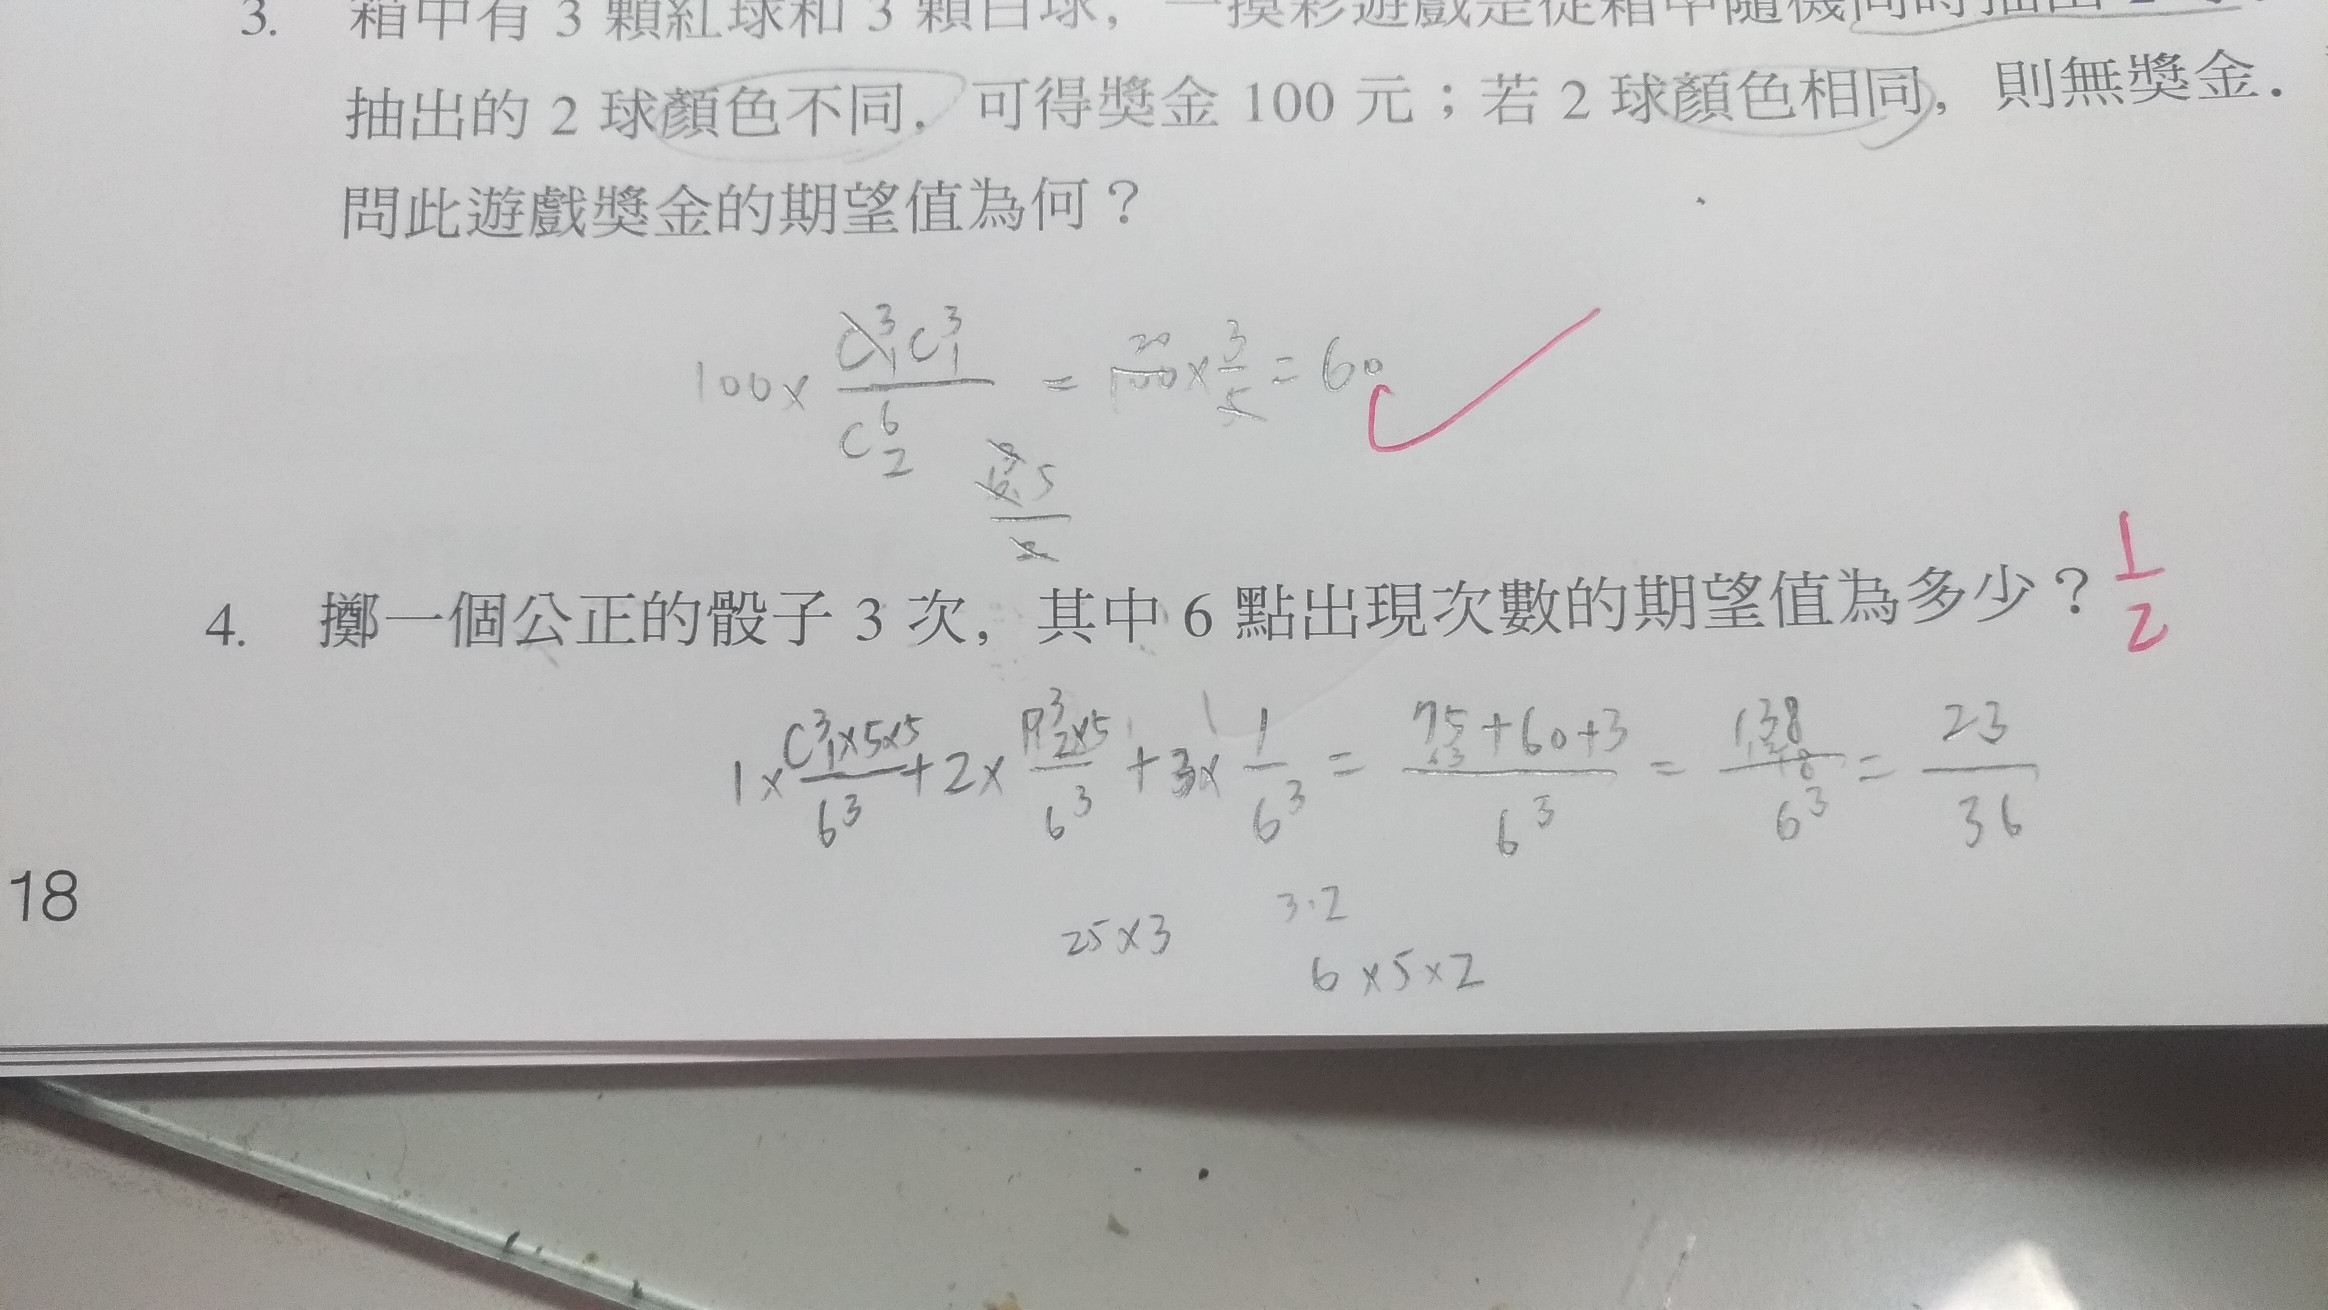 3. 箱中有 3 顆紅球和 3 顆白球，一摸彩遊戲是從箱中隨機同時抽出 2 球．
抽出的 2 球顏色不同，可得獎金 100 元；若 2 球顏色相同，則無獎金．
問此遊戲獎金的期望值為何？
100 × C³₁C³₁ / C⁶₂ = 100 × 3/5 = 60
20
5
2
4. 擲一個公正的骰子 3 次，其中 6 點出現次數的期望值為多少？ 1/2
1 × C³₁×5×5 / 6³ + 2 × P³₂×5 / 6³ + 3 × 1 / 6³ = 75+60+3 / 6³ = 138 / 6³ = 23 / 36
3·2
25×3
6×5×2
18